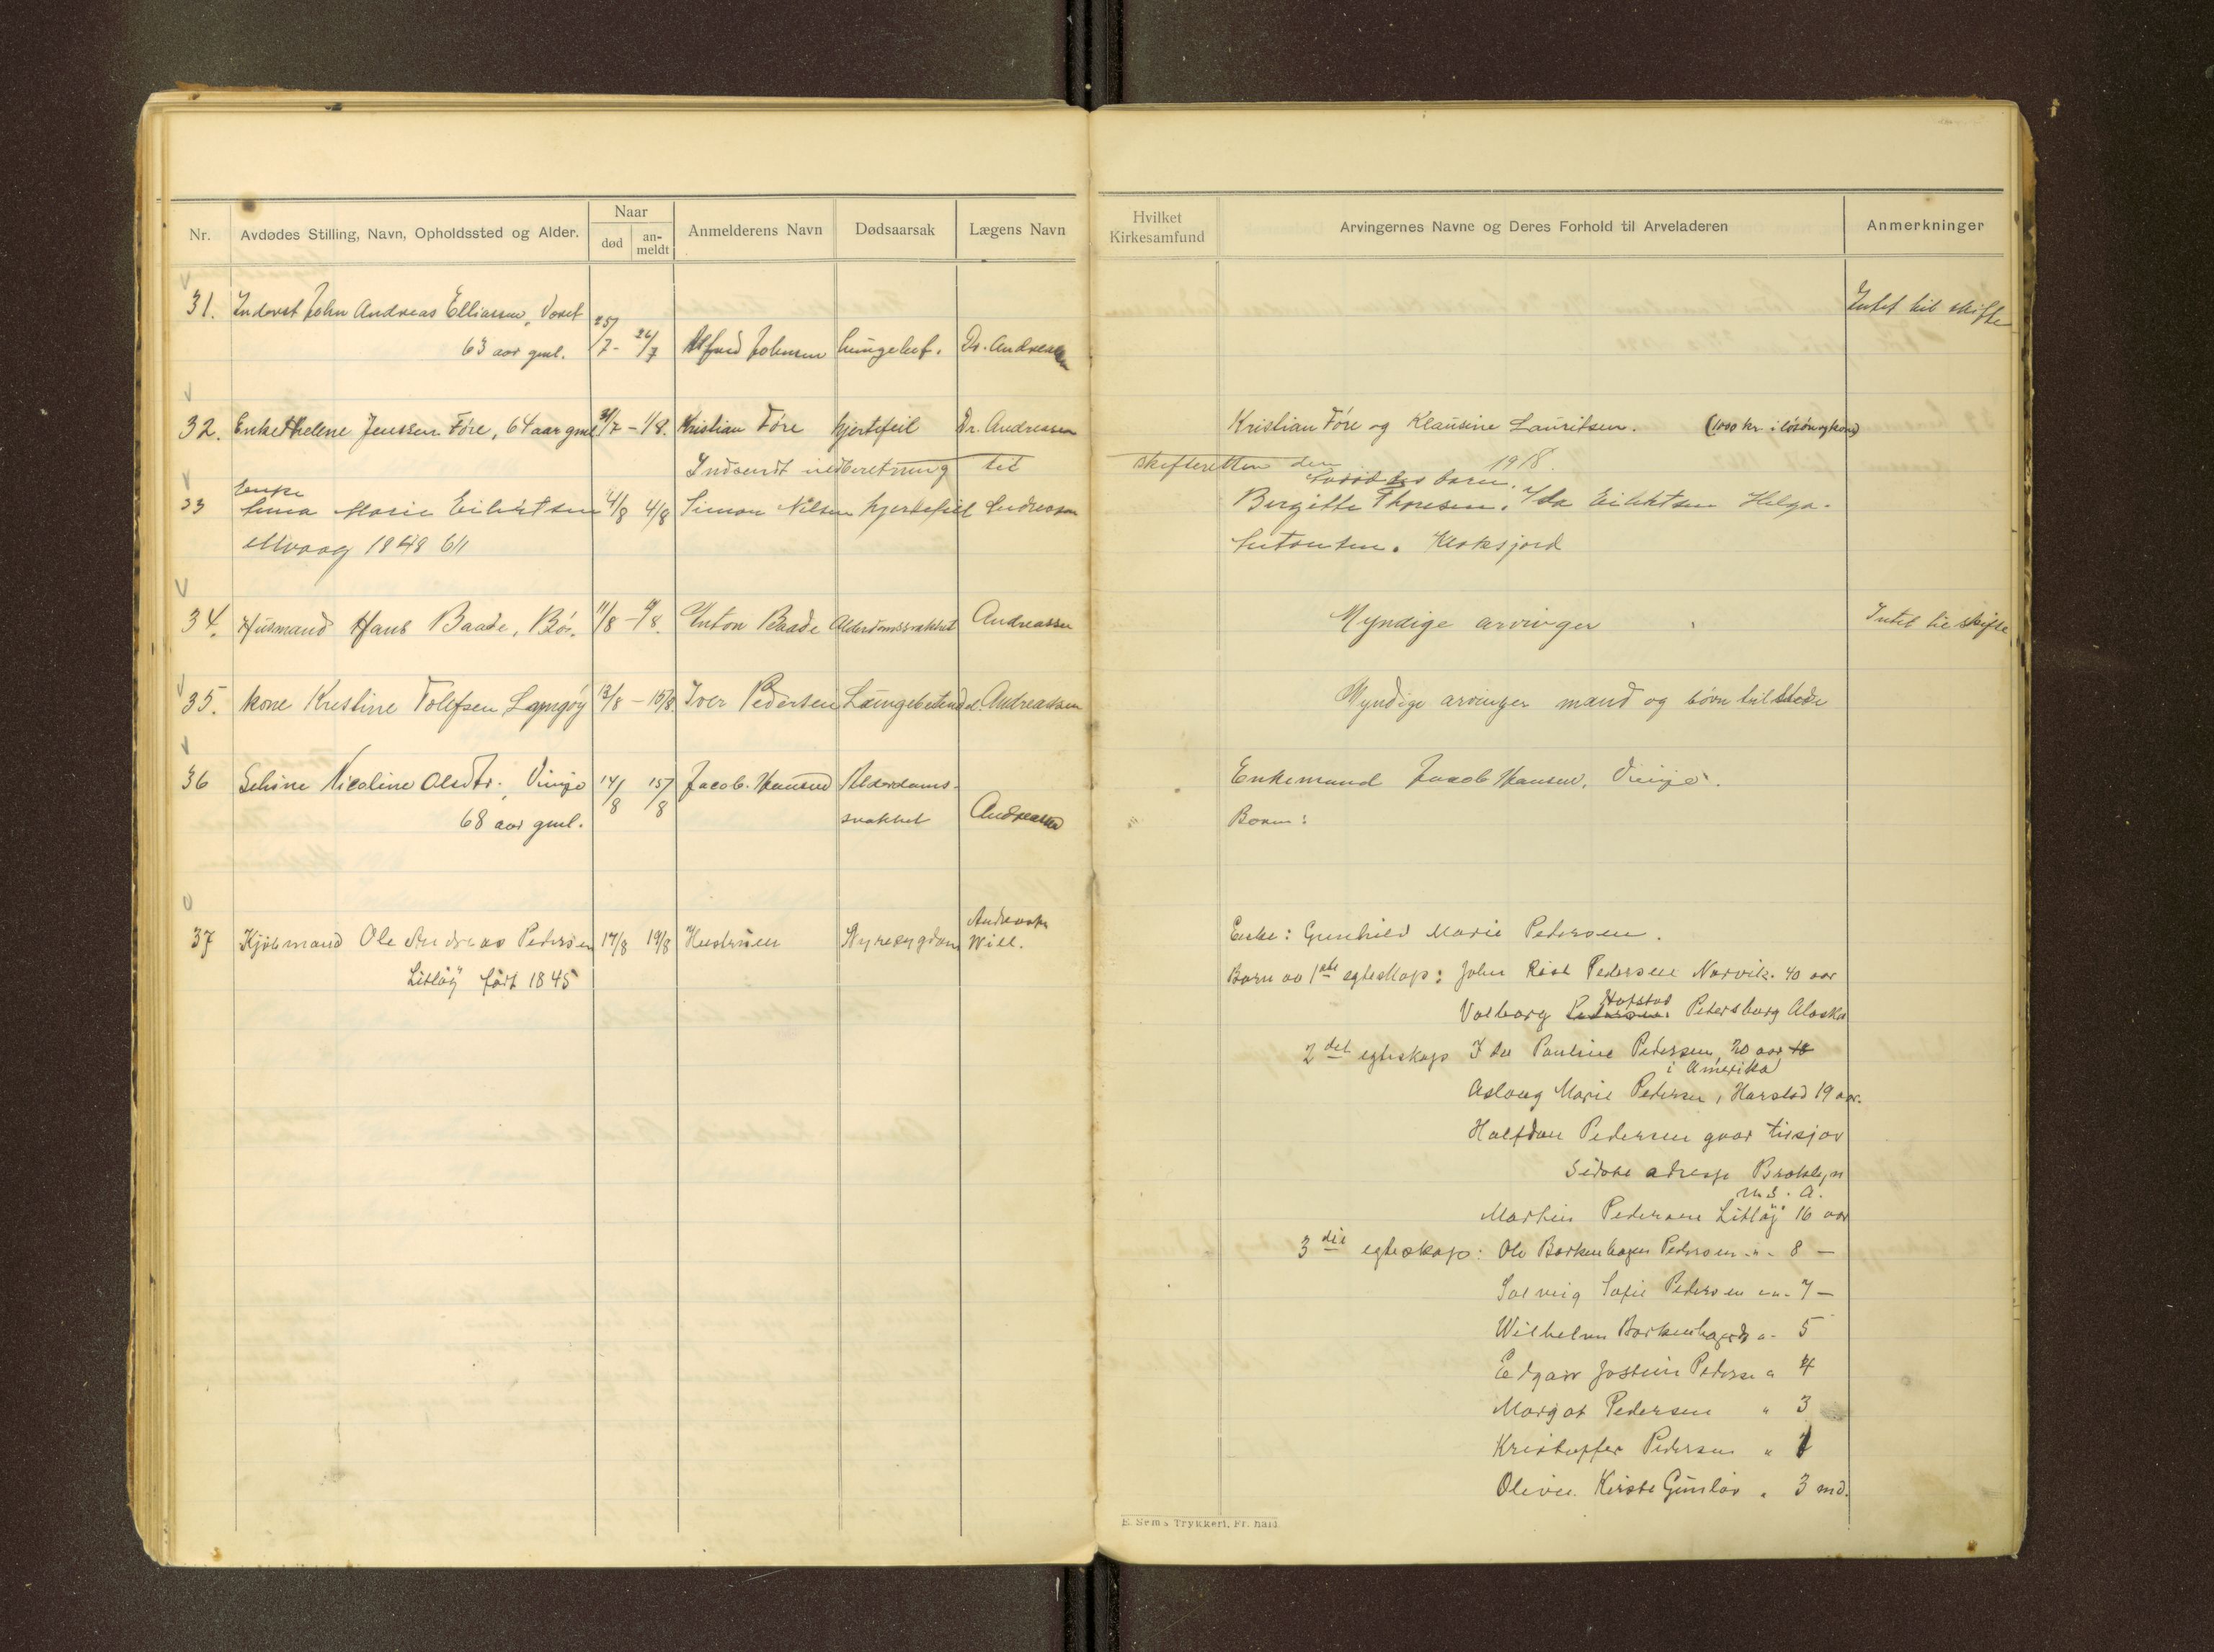 Nr.
Avdødes Stilling, Navn, Opholdssted og Alder.
Naar
død
an-
meldt
Anmelderens Navn
Dødsaarsak
Lægens Navn
Hvilket
Kirkesamfund
Arvingernes Navne og Deres Forhold til Arveladeren
Anmerkninger
31. Inderst John Andreas Elliassen, Voset
63 aar gml. 25/7 - 26/7 Alfred Johnsen lungebet. Dr. Andreassen
Intet til skifte
32. Enke Helene Jenssen Føre, 64 aar gml 31/7 - 1/8. Kristian Føre hjertefeil Dr. Andreassen
Kristian Føre og Klausine Lauritsen. (1000 kr. i løsøre
Indsendt indberetning til skifteretten den 1918.
Enke
33 Marie 4/8 4/8 Simon Nilsen hjertefeil Andreassen
barn.
Birgitte Thoresen. Ida Helga.
1848 6/1
34. Husmand Hans Baade, Bø. 11/8 - /8. Anton Baade Alderdomssvakhet Andreassen
Myndige arvinger
Intet til skifte
35. kone Kristine Tolefsen Langøy 13/8 - 15/8. Iver Pedersen Lungebetend Andreassen
Myndige arvinger mand og børn tilstede
36 Seline Nicoline Olsdtr. Vinje 14/8 15/8 Jacob Hansen Alderdoms-
68 aar gml. svakhet Andreassen
Enkemand Jacob Hansen, Vinje.
Børn:
37 Kjøbmand Ole Andreas Pedersen 17/8 19/8 Hustruen Nyresygdom Will.
Litløy født 1845
Enke: Gunhild Marie Pedersen.
Barn av 1ste egteskap: John Rist Pedersen Narvik. 40 aar
Hofstad
Valborg Pedersen. Petersburg Alaska
2det egteskap Ida Pauline Pedersen, 20 aar
i Amerika
Aslaug Marie Pedersen, Harstad 19 aar.
Halfdan Pedersen tilsjøs
Sidste adresse Broklyn
U. S. A.
Martin Pedersen Litløy 16 aar
3die egteskap: Ole Borkenhagen Pedersen -"- 8 —
Solveig Sofie Pedersen -"- 7 —
Wilhelm Borkenhagen " 5
Edgar Jostein Pedersen " 4
Margot Pedersen " 3
Kristoffer Pedersen "
Kirste Gunlav " 3 md.
E. Sems Trykkeri, Fr.hald.